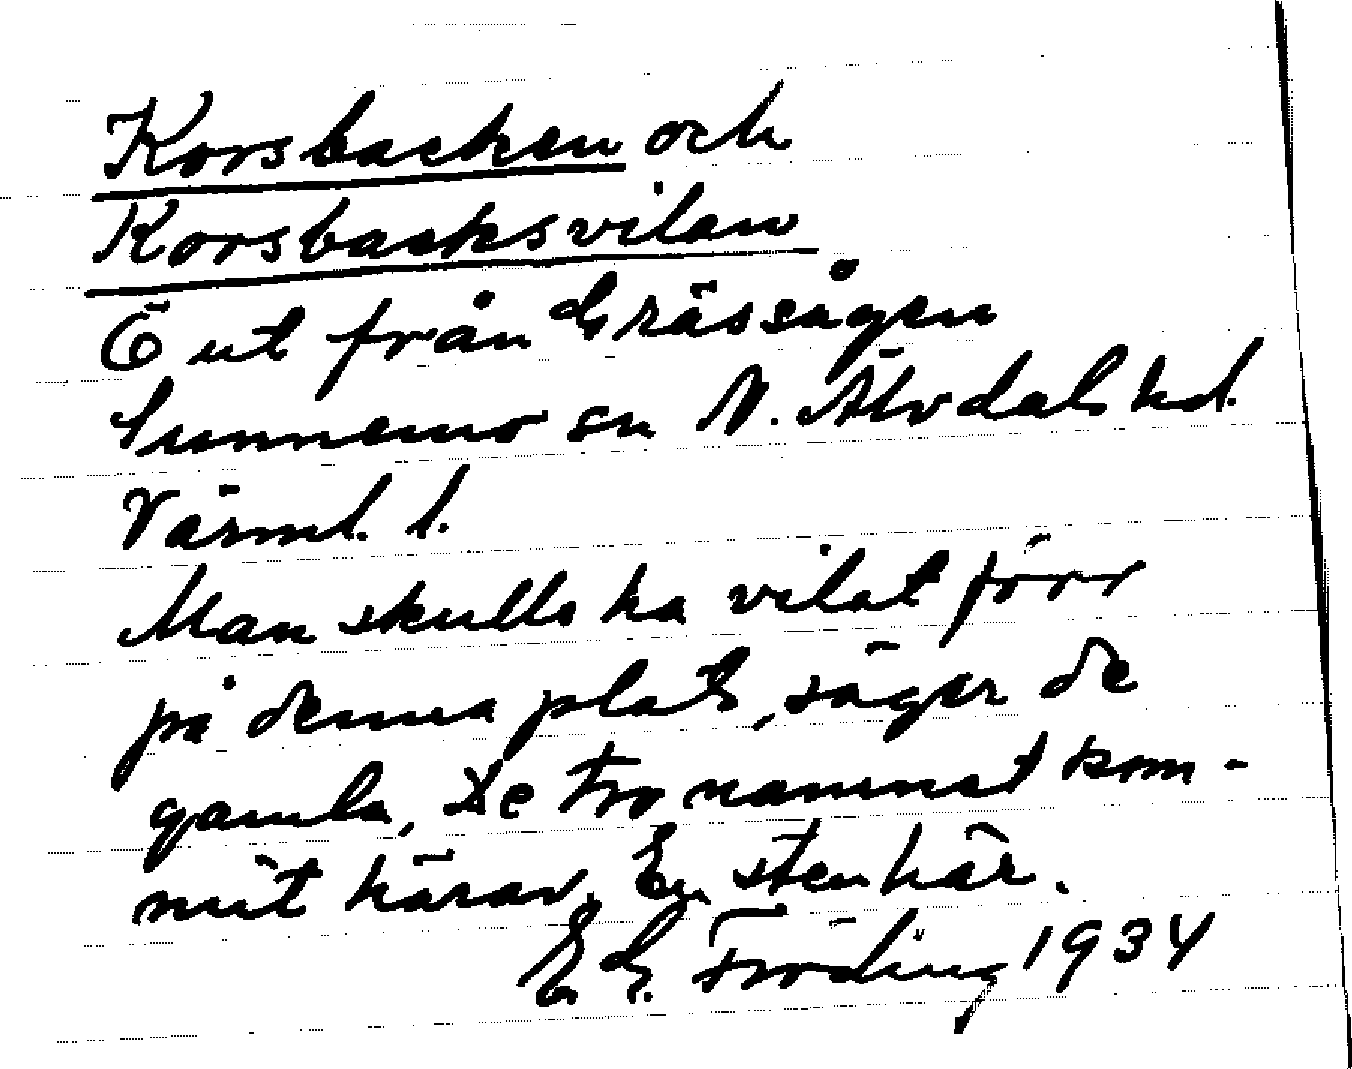 Korsbacken och
Korsbacksvilan
Ö ut från Grässågen
Sunnemo sn N. Älvdals hd.
Värml. l.
Man skulle ha vilat förr
på denna plats, säger de
gamla, De tro namnet kom-
mit härav. En sten här.
E G. Fröding 1934